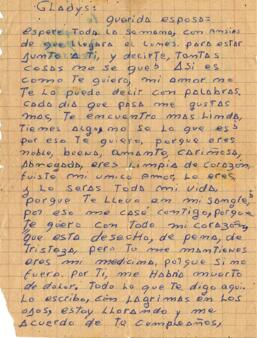 Gladys:
querida esposa=
espere Toda la semana, con ansias
de que llegara el lunes. para estar
junto a Ti, y decirte, Tantas
cosas me se que? Asi es
como Te quiero, mi amor no
Te lo puedo decir con palabras.
Cada dia que pasa me gustas
mas, Te encuentro mas linda,
Tienes algo, no se lo que es?
por eso Te quiero, porque eres
noble, buena, amante, cariñosa,
Abnegada, eres limpia de corazón,
fuiste mi unico Amor, lo eres
y lo seras Toda mi vida,
porque Te llevo en mi sangre,
por eso me casé contigo, porque
Te quiero con Todo mi corazón,
que esta desecho, de pena, de
Tristeza, pero Tu me mantienes
eres mi medicina, porque si no
fuera. por Ti, me habria muerto
de dolor. Todo lo que Te digo aqui.
Lo escribo, con lagrimas en los
ojos, estoy llorando y me
Acuerdo de Tu cumpleaños,